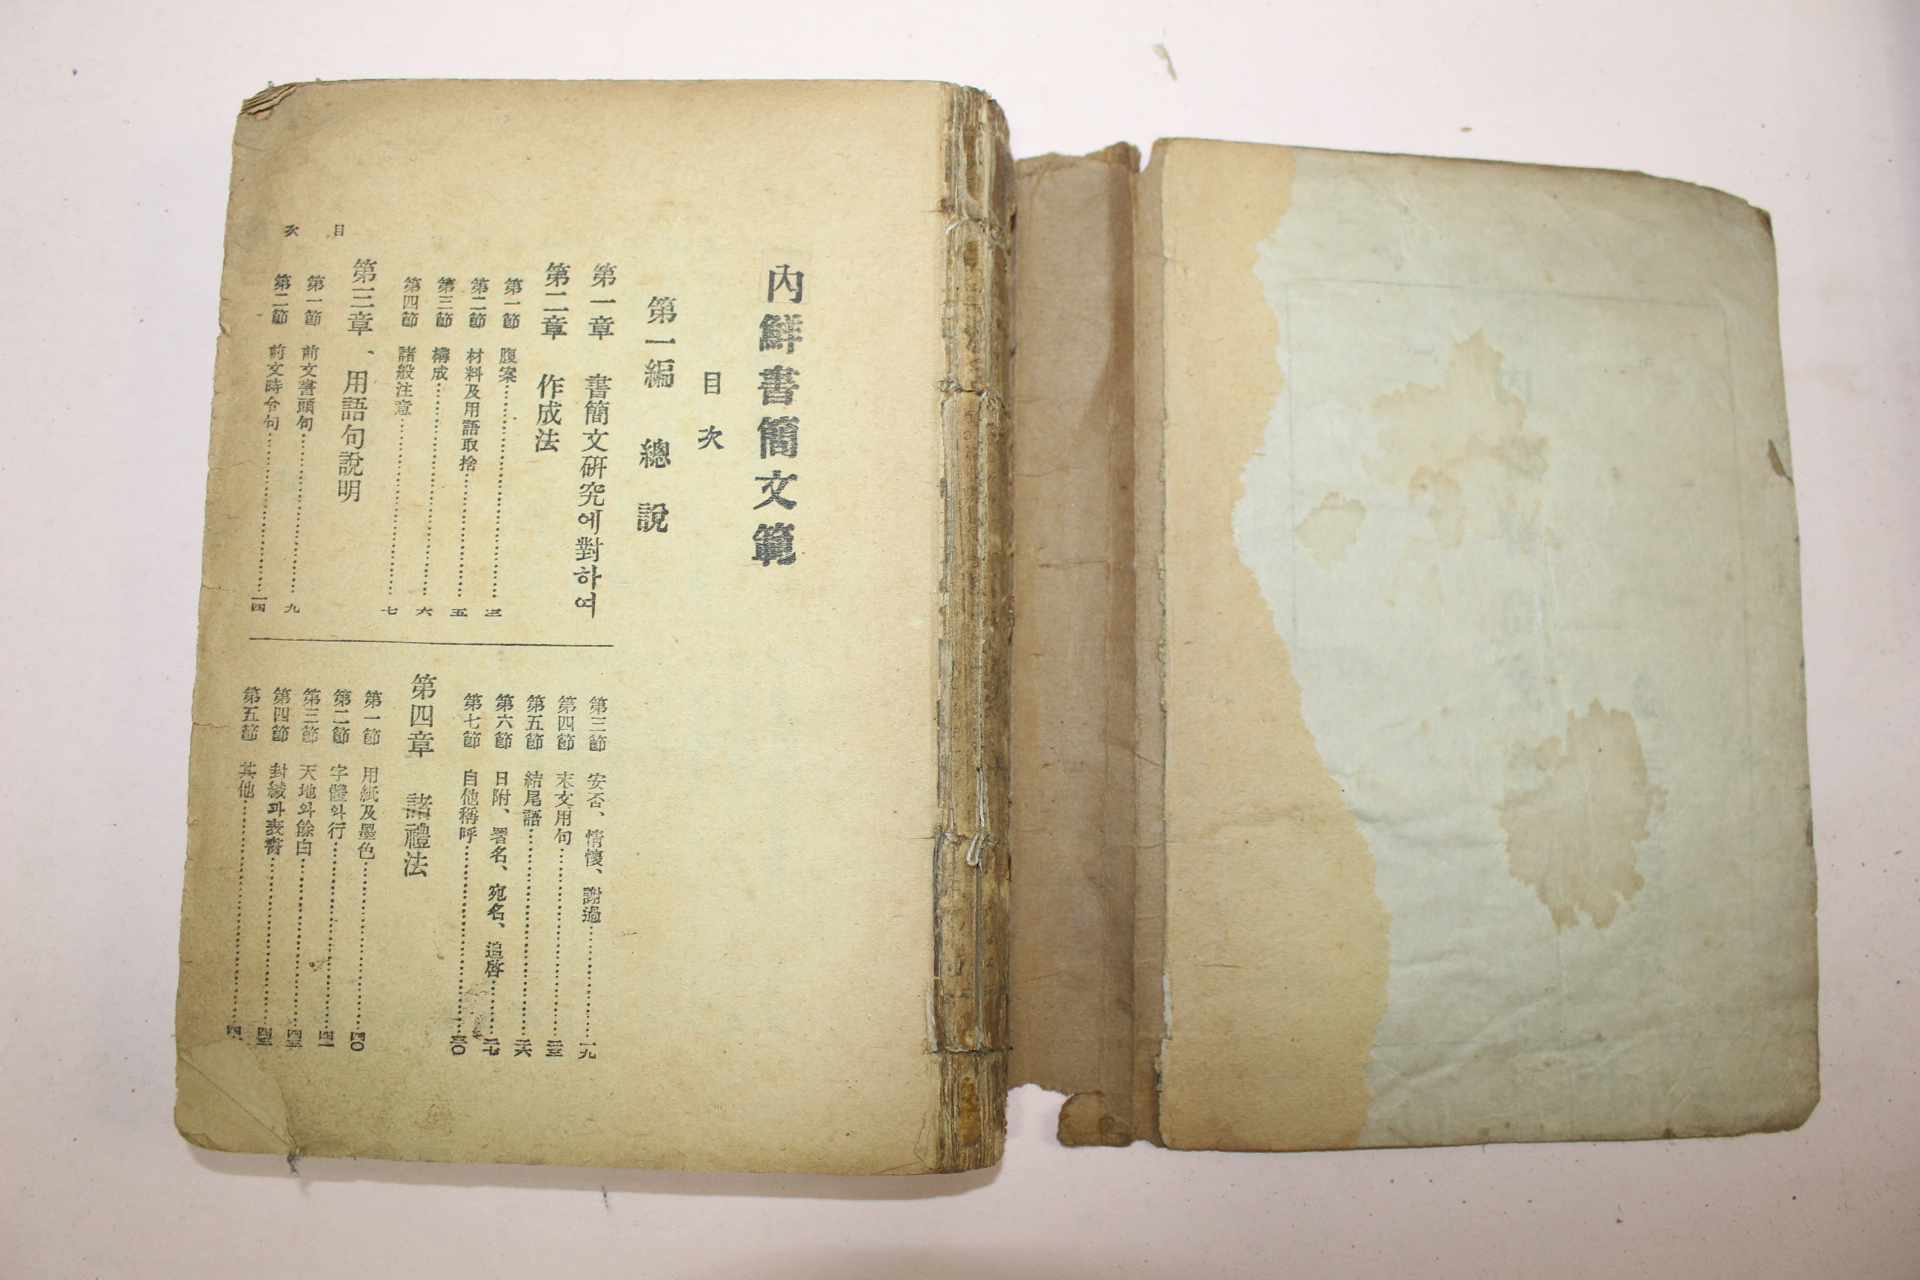 內鮮書簡文範
目次
第一編 總說
第一章 書簡文硏究에對하여
第二章 作成法
第一節 腹案……三
第二節 材料及用語取捨……五
第三節 構成……六
第四節 諸般注意……七
第三章、用語句說明
第一節 前文書頭句……九
第二節 前文時令句……一四
第三節 安否、情懷、謝過……一九
第四節 末文用句……二三
第五節 結尾語……二六
第六節 日附、署名、宛名、追啓……二七
第七節 自他稱呼……三〇
第四章 諸禮法
第一節 用紙及墨色……四〇
第二節 字體와行……四一
第三節 天地와餘白……四三
第四節 封緘과表書
第五節 其他
目次